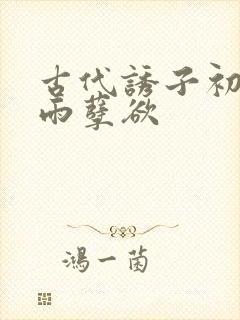 古代誘子初
雨孽欲
鴻一菌